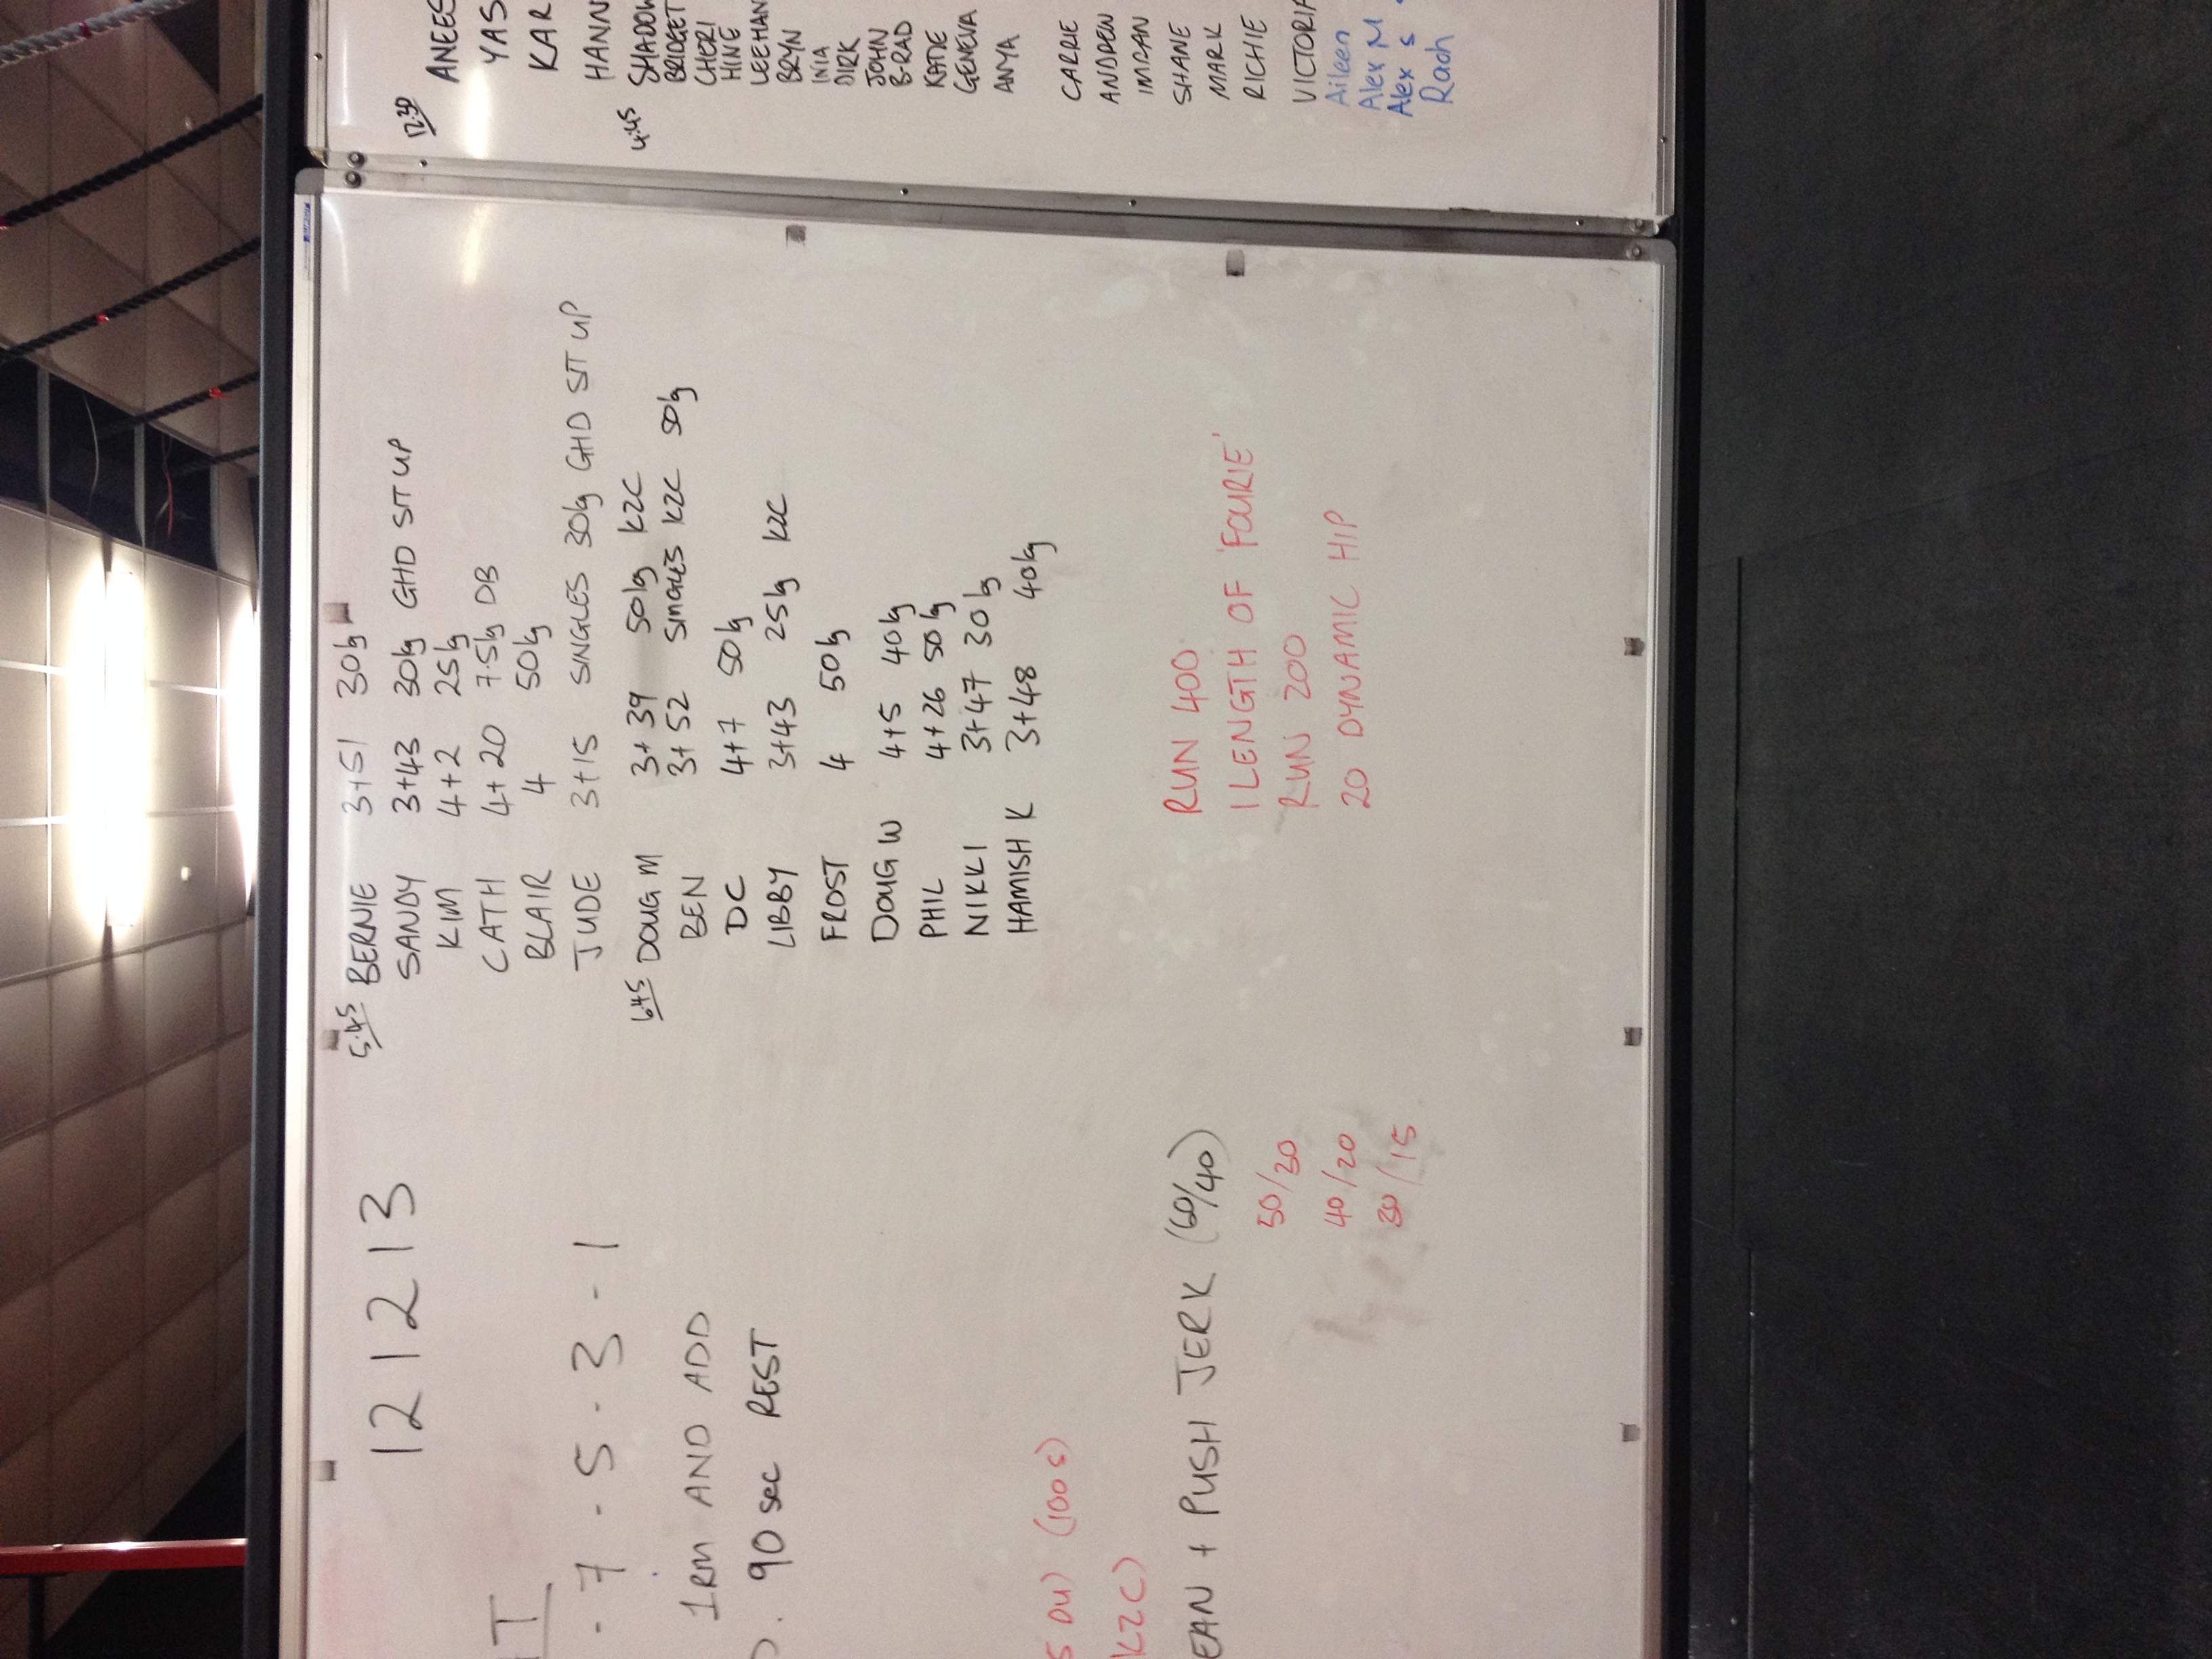 121213
T
. 7 . 5 . 3 . 1
1RM AND ADD
. 90 sec REST
5 DU) (100 s)
K2C)
EAN + PUSH JERK (60/40)
50/30
40/20
30/15
5:45 BERNIE 3+51 30kg
SANDY 3+43 30kg GHD SIT UP
KIM 4+2 25kg
CATH 4+20 7.5kg DB
BLAIR 4 50kg
JUDE 3+15 SINGLES 30kg GHD SIT UP
6:45 DOUG M 3+39 50kg K2C
BEN 3+52 SINGLES K2C 50kg
DC 4+7 50kg
LIBBY 3+43 25kg K2C
FROST 4 50kg
DOUG W 4+5 40kg
PHIL 4+26 50kg
NIKKI 3+47 30kg
HAMISH K 3+48 40kg
RUN 400
1 LENGTH OF 'FOURIE'
RUN 200
20 DYNAMIC HIP
12:30
ANEES
YAS
KAR
HANN
4:45 SHADOW
BRIDGET
CHERI
HINE
LEEHAN
BRYN
INIA
DIRK
JOHN
B-RAD
KATIE
GENEVA
ANYA
CARRIE
ANDREW
IMRAN
SHANE
MARK
RICHIE
VICTORIA
Aileen
Alex M
Alex S